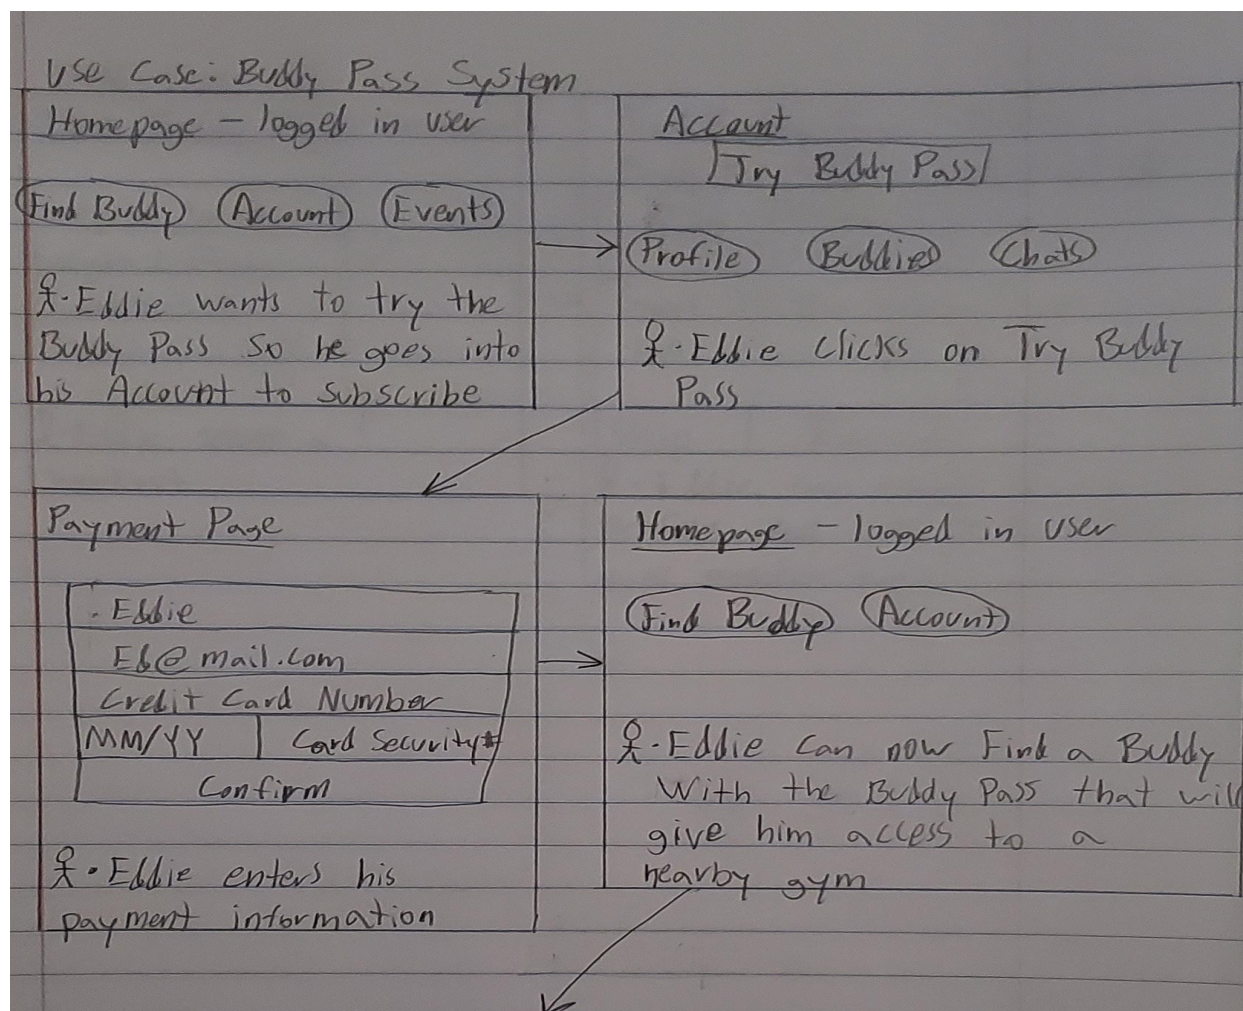 Use Case: Buddy Pass System
Homepage - logged in user
Find Buddy Account Events
· Eddie wants to try the
Buddy Pass so he goes into
his Account to subscribe
Account
Try Buddy Pass
Profile Buddies Chats
· Eddie clicks on Try Buddy
Pass
Payment Page
· Eddie
Ed@mail.com
Credit Card Number
MM/YY Card Security#
Confirm
· Eddie enters his
payment information
Homepage - logged in user
Find Buddy Account
· Eddie can now Find a Buddy
With the Buddy Pass that will
give him access to a
nearby gym